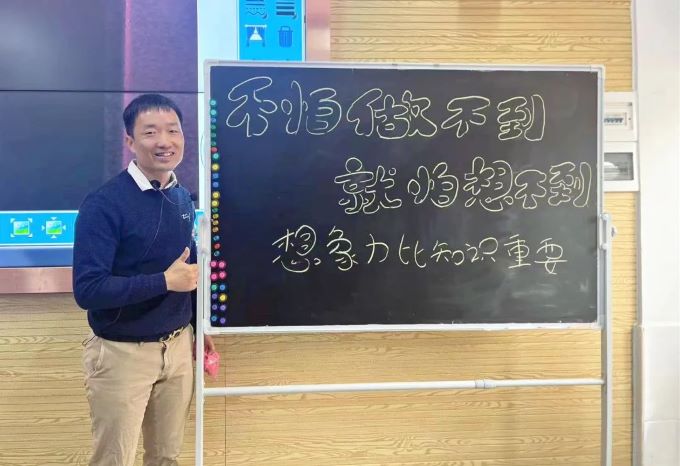 不怕做不到
就怕想不到
想象力比知识重要